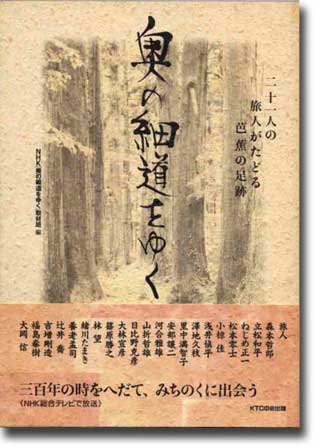 二十一人の
旅人がたどる
芭蕉の足跡
奥の細道をゆく
NHK「奥の細道をゆく」取材班 編
旅人
森本哲郎
立松和平
ねじめ正一
松本零士
小椋 佳
浅井慎平
澤地久枝
里中満智子
安部譲二
河合雅雄
山折哲雄
日比野克彦
大林宣彦
篠原勝之
林 望
緒川たまき
養老孟司
辻井 喬
吉増剛造
福島泰樹
大岡 信
三百年の時をへだて、みちのくに出会う
《NHK総合テレビで放送》
KTC中央出版